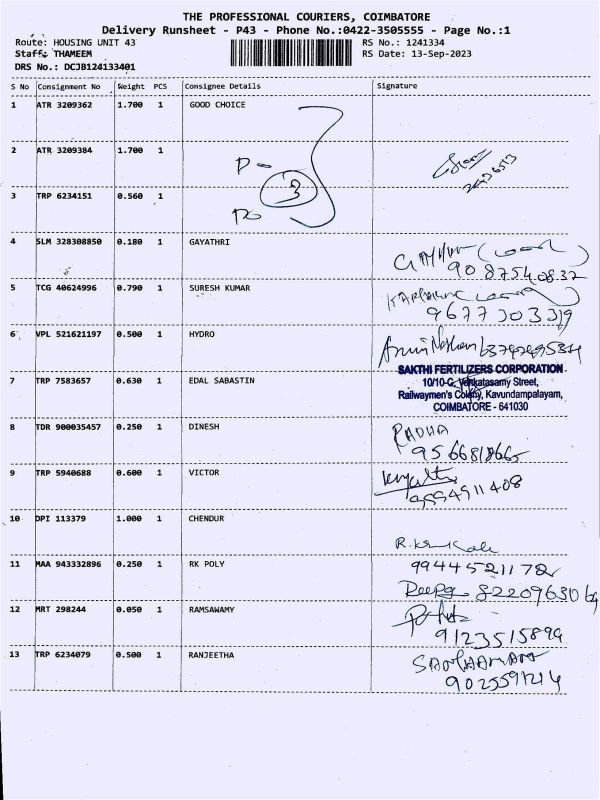 THE PROFESSIONAL COURIERS, COIMBATORE
Delivery Runsheet - P43 - Phone No.:0422-3505555 - Page No.:1
Route: HOUSING UNIT 43 RS No.: 1241334
Staff: THAMEEM RS Date: 13-Sep-2023
DRS No.: DCJB124133401
S No Consignment No Weight PCS Consignee Details Signature
1 ATR 3209362 1.700 1 GOOD CHOICE
2 ATR 3209384 1.700 1
3
3 TRP 6234151 0.560 1
4 SLM 328308850 0.180 1 GAYATHRI
9087540832
5 TCG 40624996 0.790 1 SURESH KUMAR
9677303319
6 VPL 521621197 0.500 1 HYDRO
SAKTHI FERTILIZERS CORPORATION
7 TRP 7583657 0.630 1 EDAL SABASTIN
10/10-C, Venkatasamy Street,
Railwaymen's Colony, Kavundampalayam,
COIMBATORE - 641030
8 TDR 900035457 0.250 1 DINESH RADHA
9 TRP 5940688 0.600 1 VICTOR
9994911408
10 DPI 113379 1.000 1 CHENDUR
11 MAA 943332896 0.250 1 RK POLY
Deepa
12 MRT 298244 0.050 1 RAMSAWAMY
9123515899
13 TRP 6234079 0.500 1 RANJEETHA
9025591214